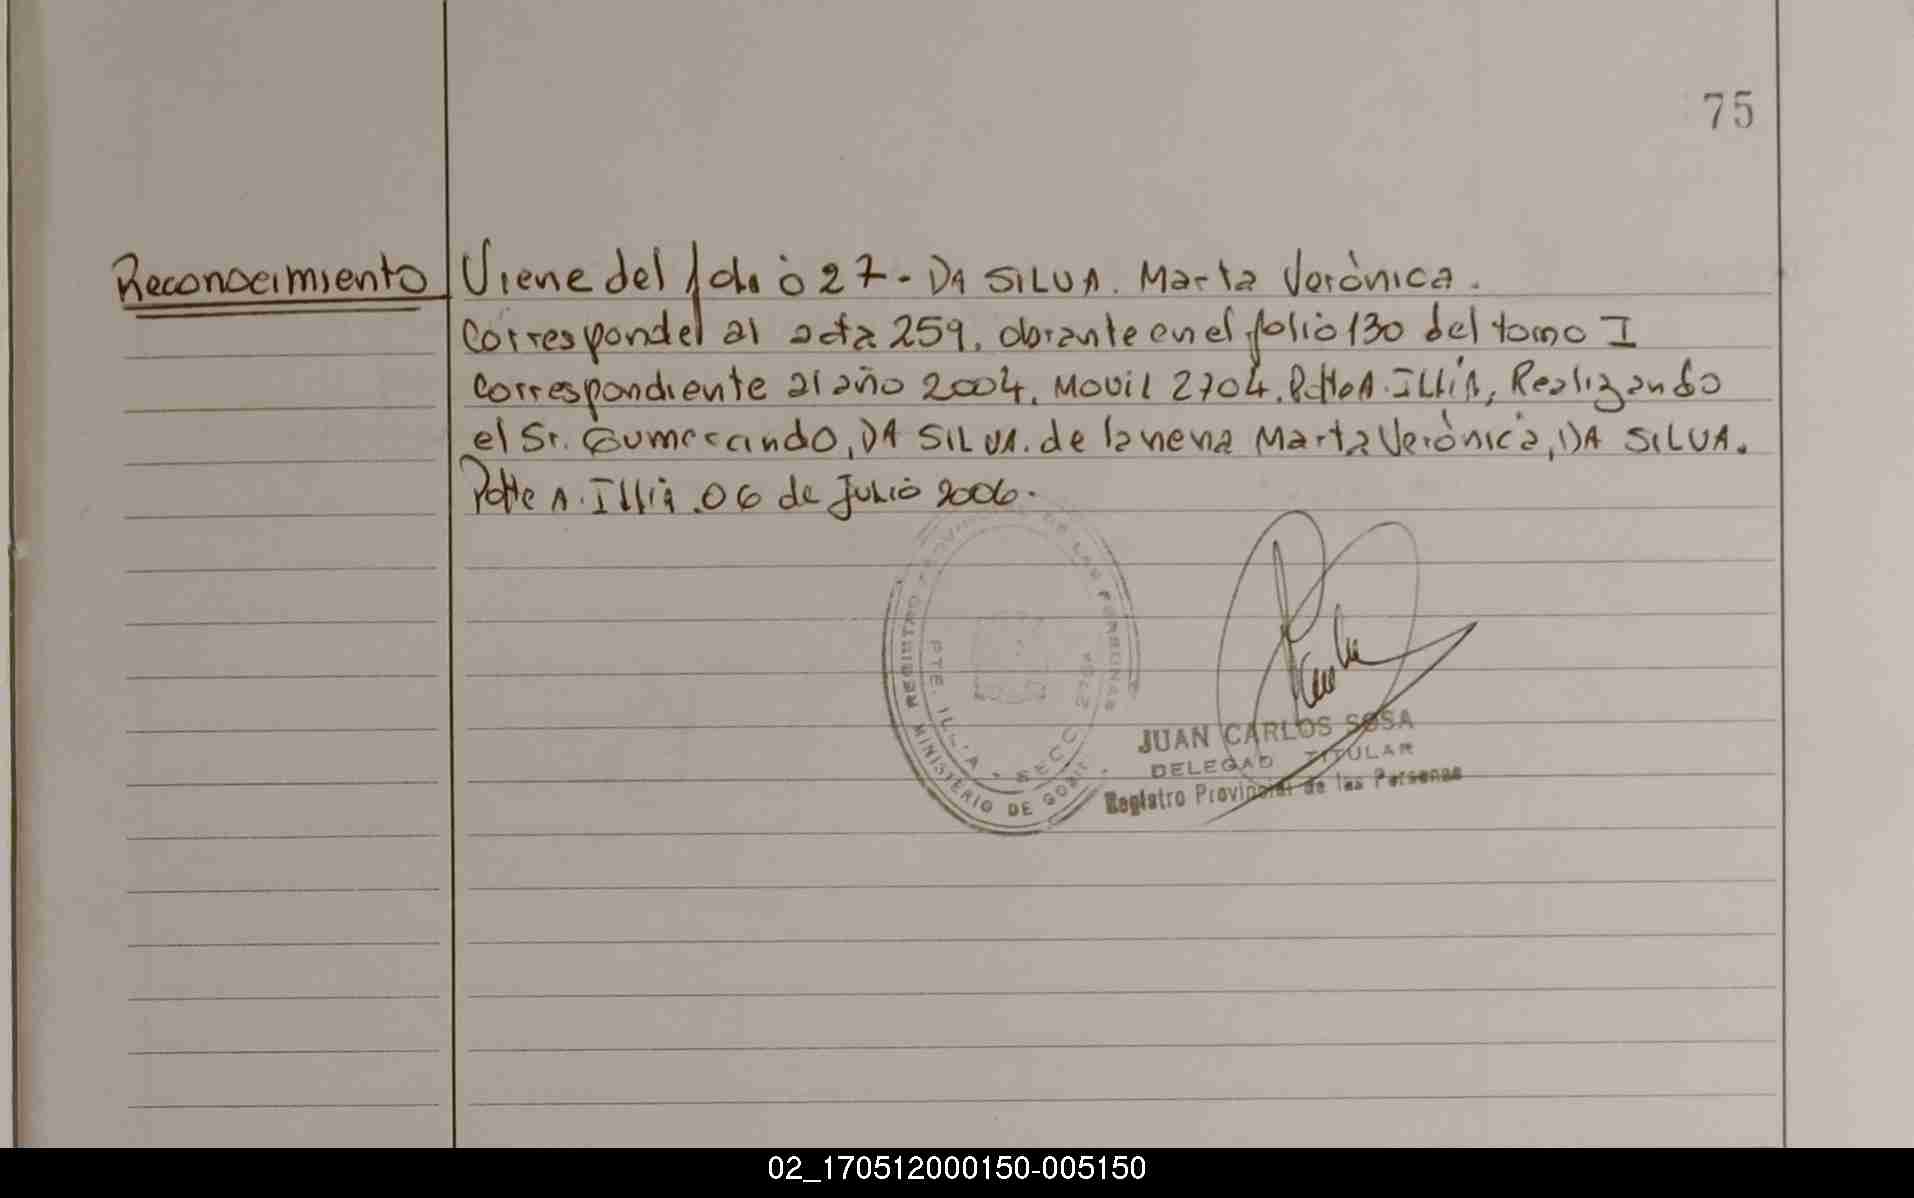 75
Reconocimiento
Viene del folio 27 - DA SILVA. Marta Verónica.
Corresponde al acta 259. obrante en el folio 130 del tomo I
correspondiente al año 2004. Movil 2704. Pdte A. Illia, Realizando
el Sr. Gumercindo, DA SILVA. de la nena Marta Verónica, DA SILVA.
Pdte A. Illia. 06 de Julio 2006.
REGISTRO PROVINCIAL DE LAS PERSONAS
PTE. ILLIA - SECC
MINISTERIO DE GOB
JUAN CARLOS SOSA
DELEGAD TITULAR
Registro Provincial de las Personas
02_170512000150-005150